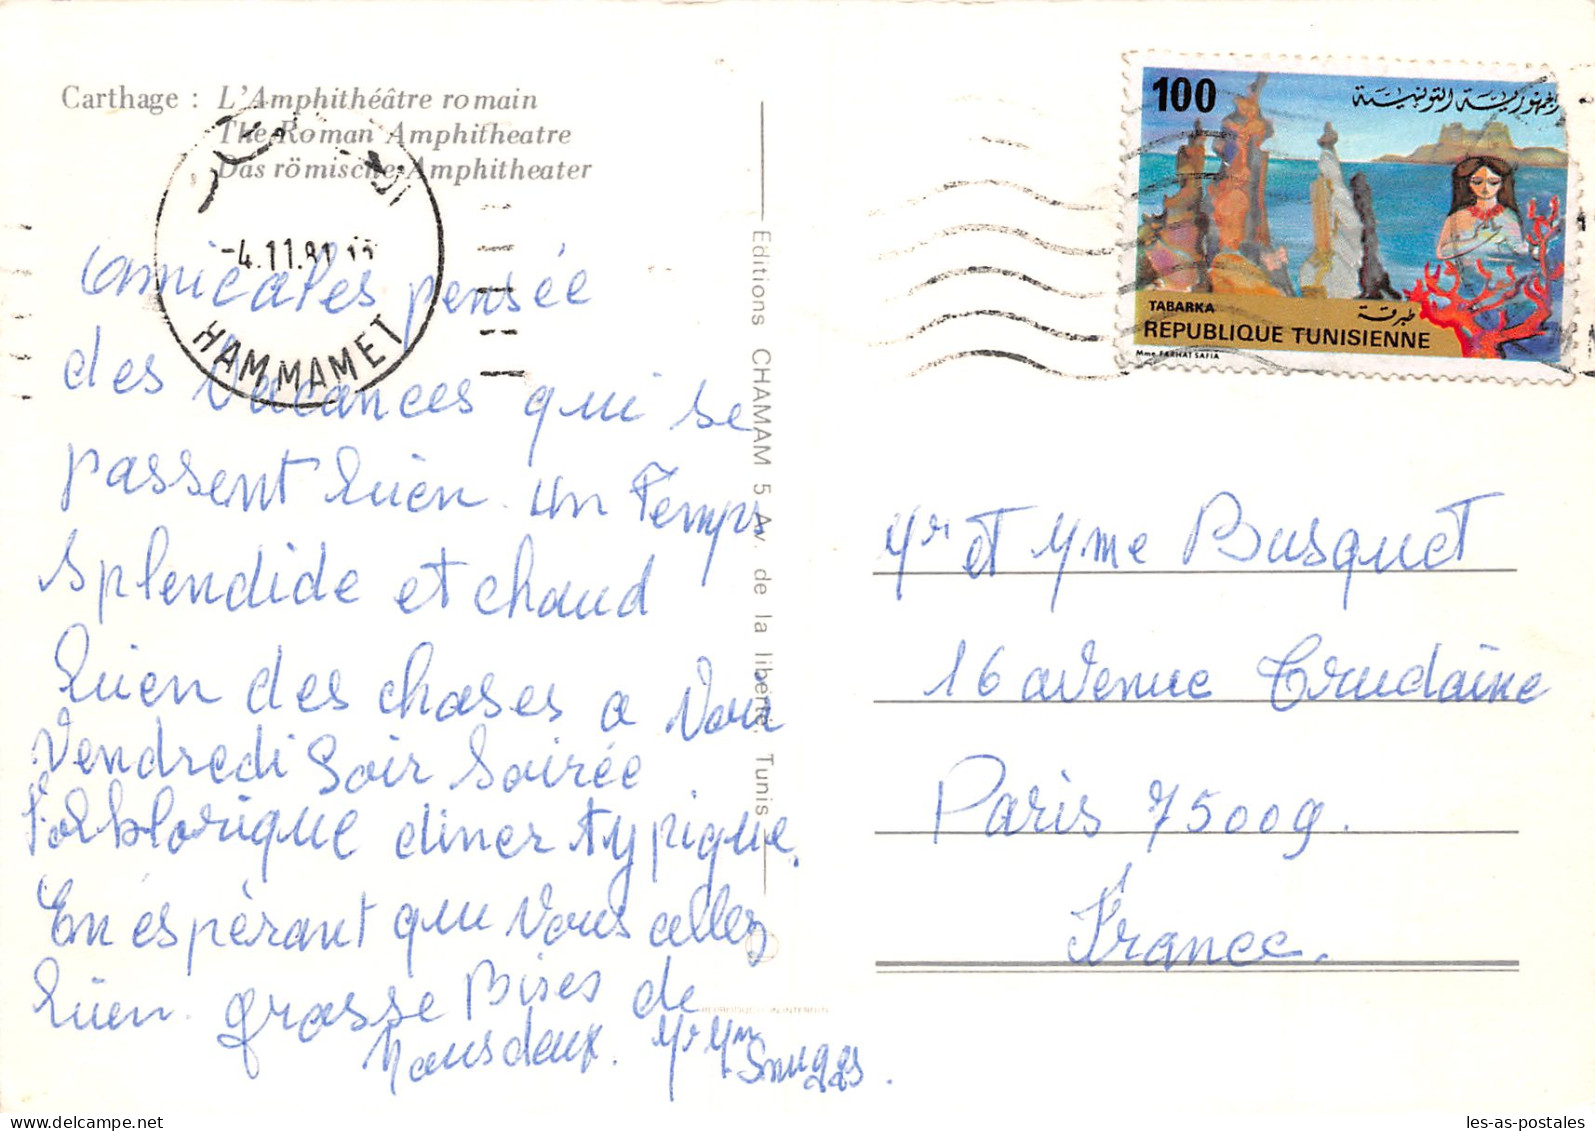 Carthage : L'Amphithéâtre romain
The Roman Amphitheatre
Das römische Amphitheater
-4.11.81
HAMMAMET
amicales pensée
des Vacances qui se
passent bien. un Temps
splendide et chaud
bien des choses a Voir
Vendredi Soir Soirée
Folklorique diner typique.
En espérant que Vous allez
bien. grosse Bises de
nous deux. Mr Mm
Editions CHAMAM 5 Av. de la liberté. Tunis
100
الجمهورية التونسية
TABARKA
طبرقة
REPUBLIQUE TUNISIENNE
Mme FARHAT SAFIA
Mr et Mme Busquet
16 avenue Trudaine
Paris 75009.
France.
les-as-postales
les-as-postales.com